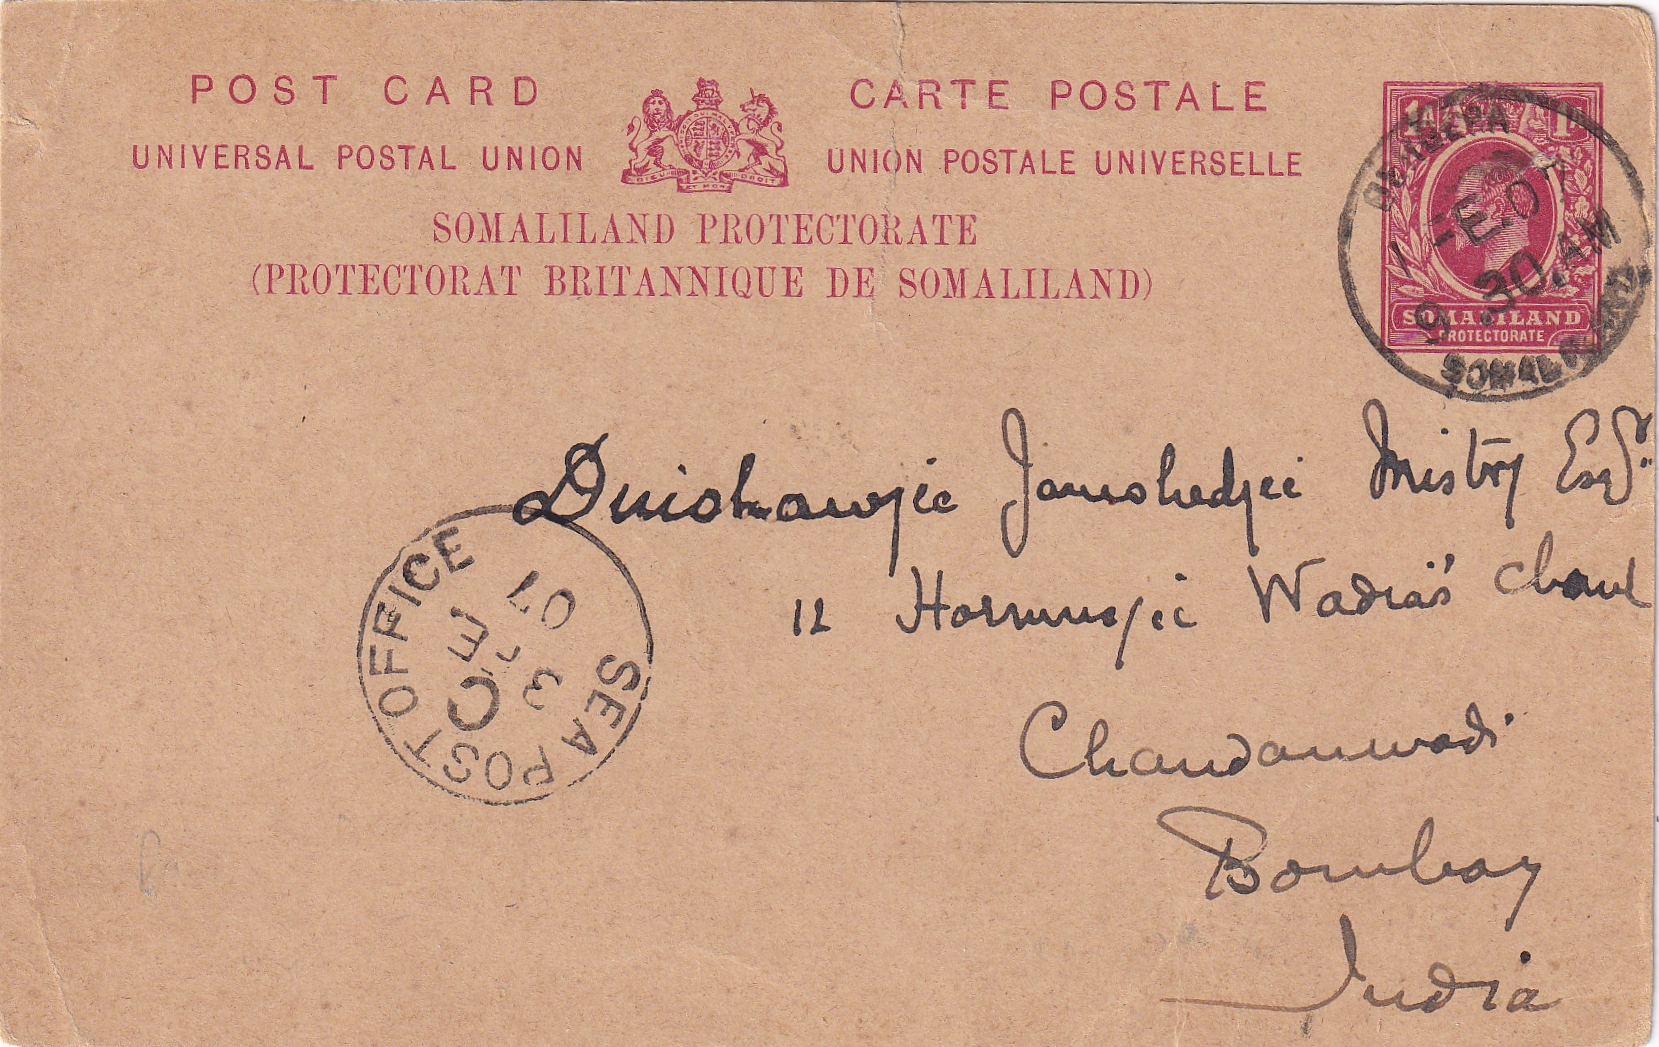 POST CARD
CARTE POSTALE
UNIVERSAL POSTAL UNION
UNION POSTALE UNIVERSELLE
DIEU ET MON DROIT
SOMALILAND PROTECTORATE
(PROTECTORAT BRITANNIQUE DE SOMALILAND)
SOMALILAND
PROTECTORATE
FE 07
9.30.AM
Jamshedjee Mistry Esqr.
12 Hormusjee Wadia's Chaul
Chandanwadi
Bombay
India
SEA POST OFFICE
C
3 FE
07